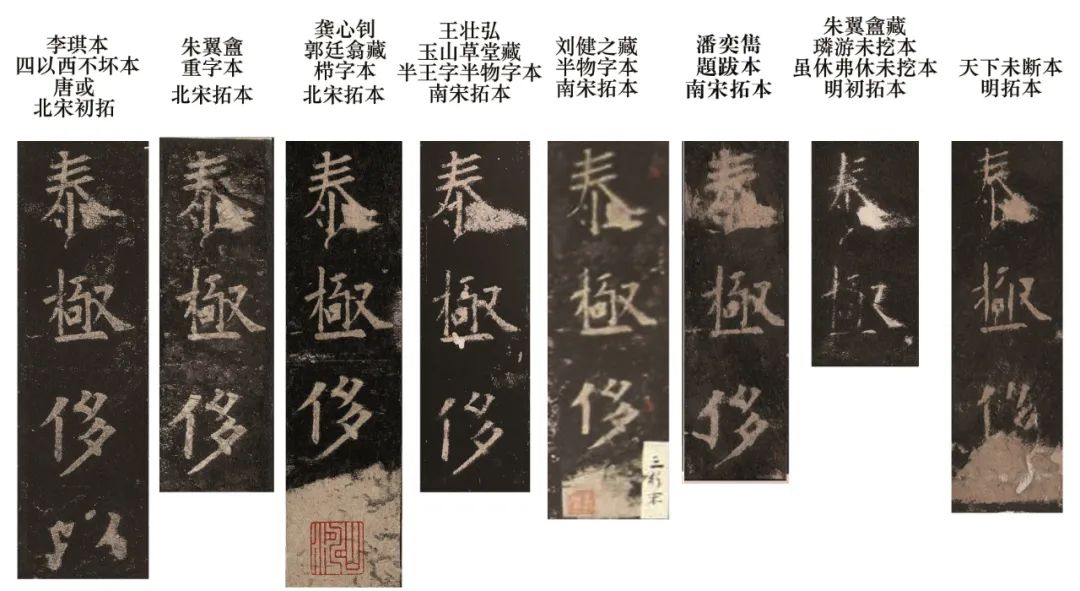 李琪本
四以西不坏本
唐或
北宋初拓
朱翼盦
重字本
北宋拓本
龚心钊
郭廷翁藏
栉字本
北宋拓本
王壮弘
玉山草堂藏
半王字半物字本
南宋拓本
刘健之藏
半物字本
南宋拓本
潘奕雋
題跋本
南宋拓本
朱翼盦藏
璘游未挖本
虽休弗休未挖本
明初拓本
天下未断本
明拓本
泰極侈以
泰極侈
泰極侈
泰極侈
泰極侈
泰極侈
泰極
泰極侈